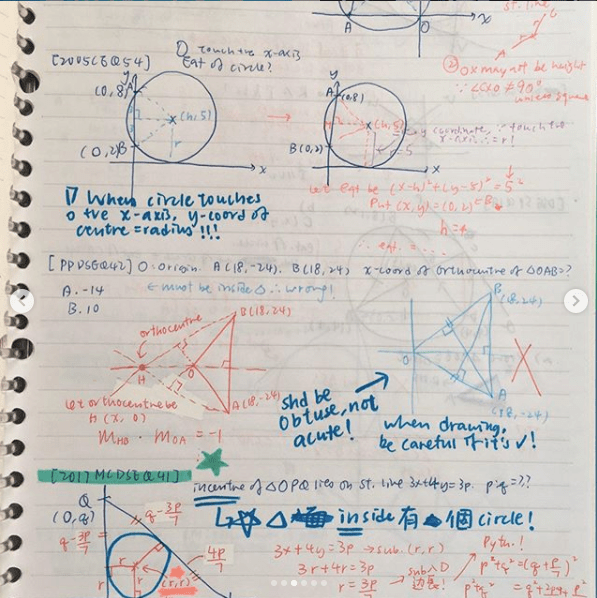 A
O
x
st. line
L
② OX may not be height
∵ ∠CXO ≠ 90°
unless square
[2005CEQ54]
touch +ve x-axis
Eqt of circle?
y
A
(0,8)
(h,5)
(0,2) B
r
x
y
A (0,8)
(h,5)
y coordinate, ∵ touch +ve
x-axis ∴ = r!
B(0,2)
r=5
x
Let eqt be (x-h)²+(y-5)²=5²
Put (x,y)=(0,2)
h=4
∴ eqt. = ...
When circle touches
+ve x-axis, y-coord of
centre = radius!!!
[PPDSEQ42] O: origin. A(18,-24). B(18,24) x-coord of orthocentre of △OAB=?
A. -14
← must be inside △ ∴ wrong!
B. 10
orthocentre
B(18,24)
H
O
A(18,-24)
Let orthocentre be
H (x, 0)
m_HO · m_OA = -1
B
(18,24)
O
A
(18,-24)
shd be
obtuse, not
acute!
when drawing,
be careful if it's ✓!
[2017 MCDSEQ41]
incentre of △OPQ lies on st. line 3x+4y=3p. p:q=??
Q
(0,q)
q-3p/7
q-3p/7
4p/7
r
r
(r,r)
△ inside 有 個 circle!
3x+4y=3p → sub. (r,r)
3r+4r=3p
r=3p/7
sub △
边長!
Pyth.!
p²+q²=(q+p/7)²
p²+q²=q²+2pq/7+p²